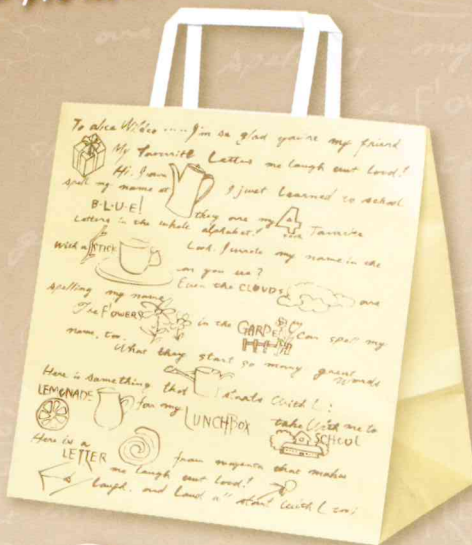 To alice Wilco .... I'm so glad you're my friend
My Favorite Letters me laugh out loud!
Hi, I am
I just Learned to school
spell my name at
B·L·U·E!
they are my 4 Favorite
Letters in the whole alphabet!
With a STICK Look I wrote my name in the
can you see?
Even the CLOUDS are
spelling my name
The FLOWERS in the GARDEN Can spell my
name, too.
What they start so many great Words
Here is something that starts With L:
LEMONADE for my LUNCHBOX take With me to SCHOOL
Here is a LETTER from magenta that makes
me laugh out loud!
Laugh, and Loud a" start with L too!